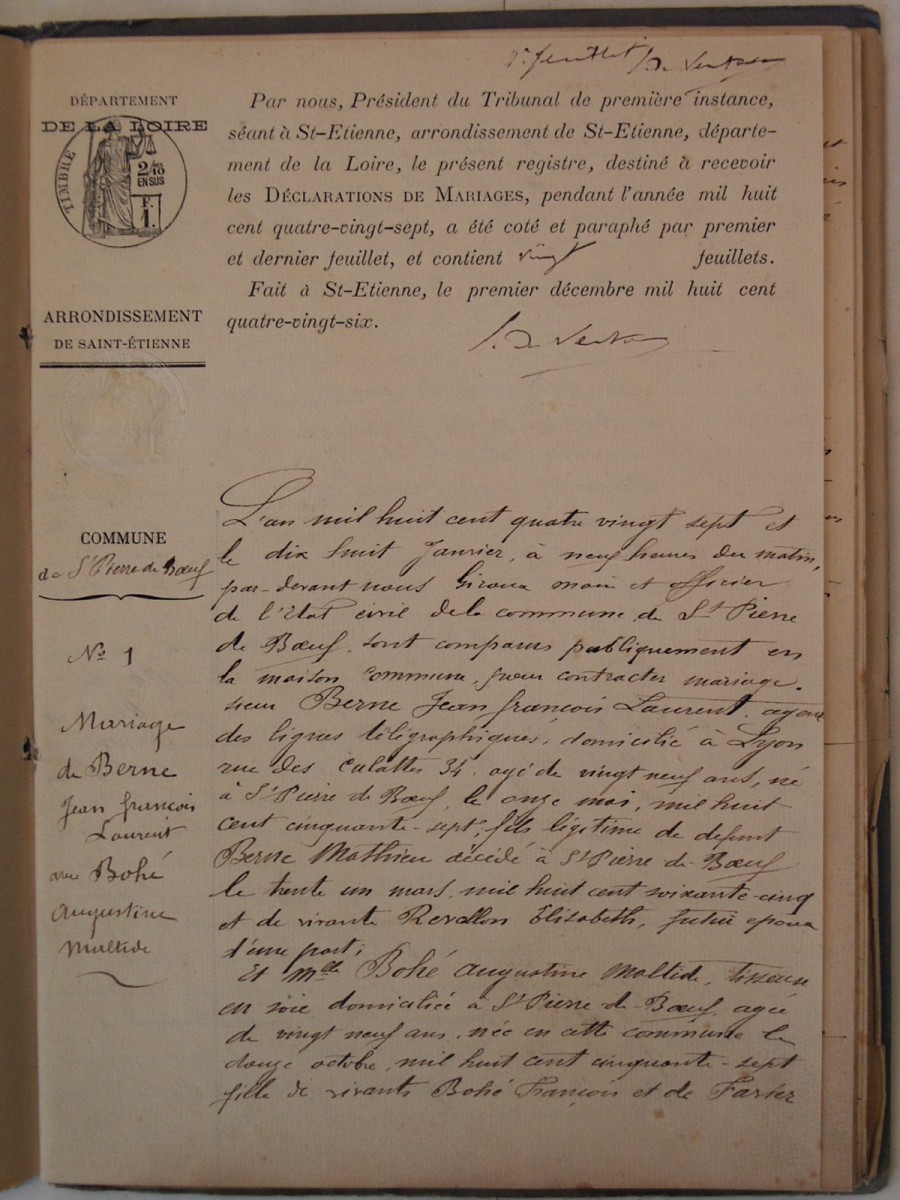 1er feuillet
DÉPARTEMENT
DE LA LOIRE
TIMBRE
2/10
EN SUS
F.
1.
Par nous, Président du Tribunal de première instance,
séant à St-Etienne, arrondissement de St-Etienne, départe-
ment de la Loire, le présent registre, destiné à recevoir
les DÉCLARATIONS DE MARIAGES, pendant l'année mil huit
cent quatre-vingt-sept, a été coté et paraphé par premier
et dernier feuillet, et contient vingt feuillets.
Fait à St-Etienne, le premier décembre mil huit cent
quatre-vingt-six.
ARRONDISSEMENT
DE SAINT-ÉTIENNE
COMMUNE
de St Pierre de Bœuf
No 1
Mariage
de Berne
Jean françois
Laurent
avec Bohé
Augustine
Maltide
L'an mil huit cent quatre vingt sept et
le dix huit Janvier, à neuf heures du matin,
par-devant nous Giroux maire et officier
de l'état civil de la commune de St Pierre
de Bœuf, sont comparus publiquement en
la maison commune pour contracter mariage.
sieur Berne Jean françois Laurent, agent
des lignes télégraphiques, domicilié à Lyon
rue des 34, agé de vingt neuf ans, né
à St Pierre de Bœuf, le onze mai, mil huit
cent cinquante-sept, fils légitime de defunt
Berne Mathieu décédé à St Pierre de Bœuf
le trente un mars, mil huit cent soixante-cinq
et de vivante Revollon Elisabeth, futur epoux
d'une part;
Et Mlle Bohé Augustine Maltide, tisseuse
en soie domiciliée à St Pierre de Bœuf, agée
de vingt neuf ans, née en cette commune le
douze octobre, mil huit cent cinquante-sept
fille de vivants Bohé François et de Farier